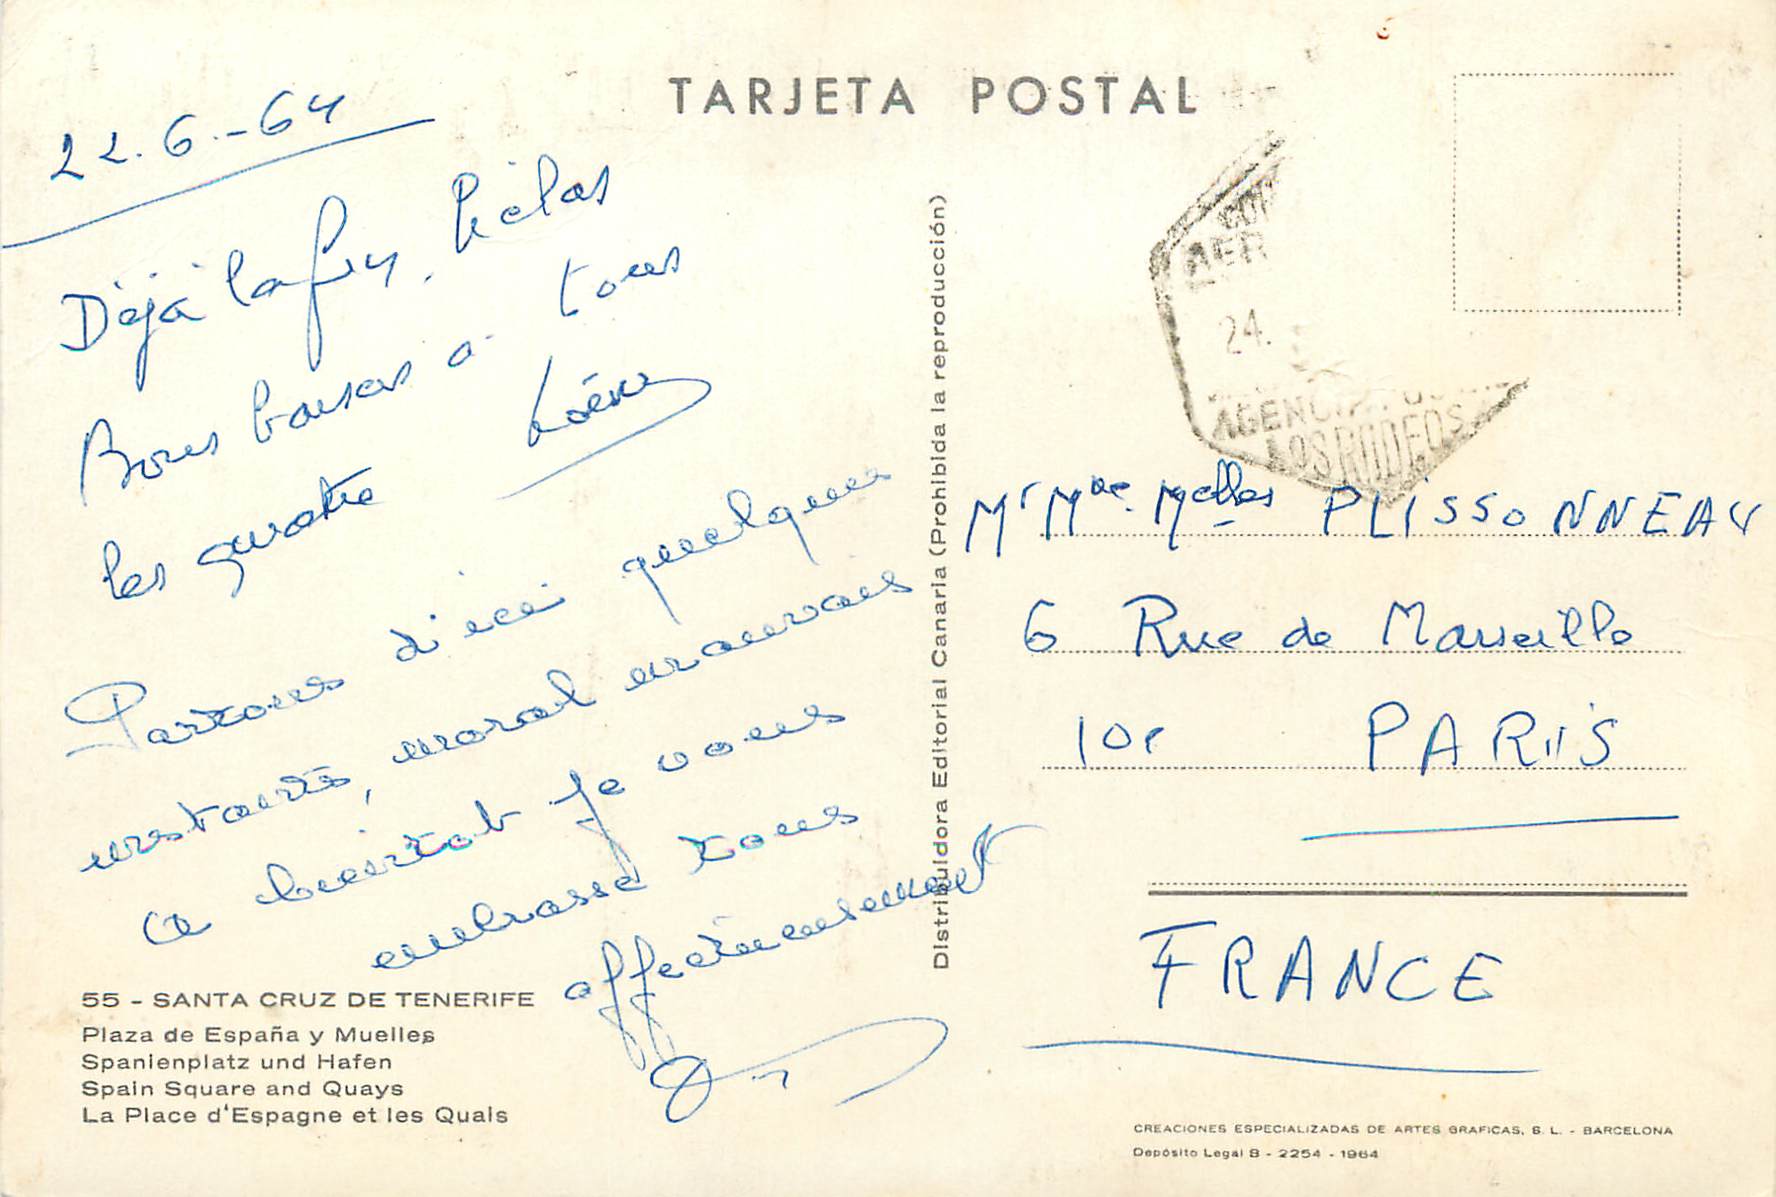 TARJETA POSTAL
22.6.-64
Déjà la fin, hélas
Bons baisers à tous
les quatre
Partons d'ici quelques
instants, moral mauvais
a bientot je vous
embrasse tous
affectueusement
55 - SANTA CRUZ DE TENERIFE
Plaza de España y Muelles
Spanienplatz und Hafen
Spain Square and Quays
La Place d'Espagne et les Quais
Distribuidora Editorial Canaria (Prohibida la reproducción)
AER
24.
AGENCIA
LOS RODEOS
Mr Mme Melles PLISSONNEAU
6 Rue de Marseille
10e PARIS
FRANCE
CREACIONES ESPECIALIZADAS DE ARTES GRAFICAS, S. L. - BARCELONA
Depósito Legal B - 2254 - 1964